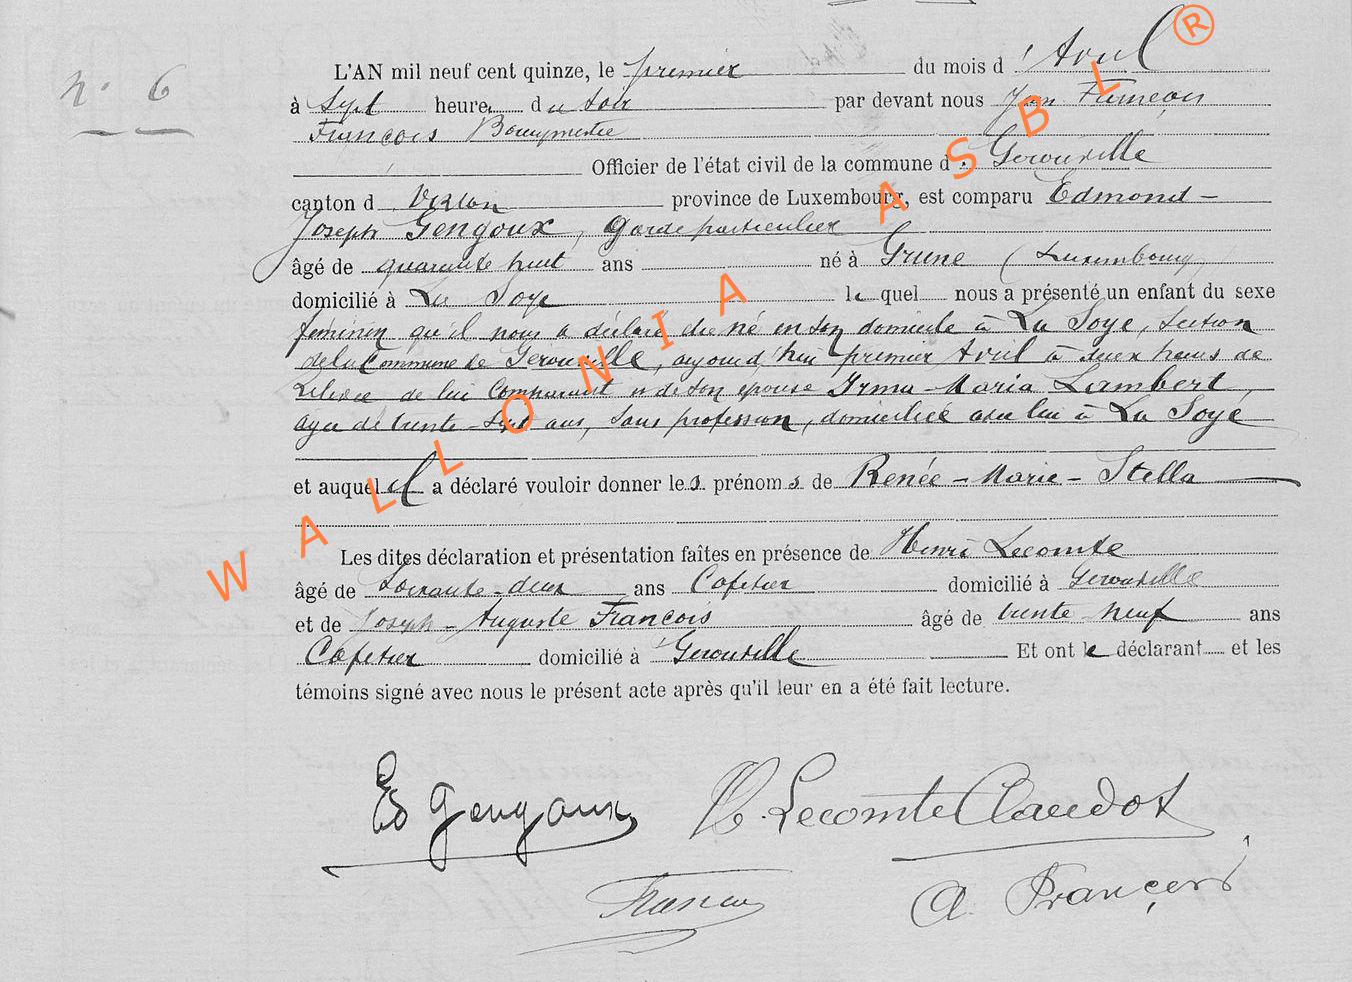 n° 6
L'AN mil neuf cent quinze, le premier du mois d' Avril
à Sept heures du soir par devant nous Jean
François Bourgmestre
Officier de l'état civil de la commune d Gerouville
canton d Virton province de Luxembourg, est comparu Edmond -
Joseph Gengoux, garde particulier
âgé de quarante huit ans né à Grune (Luxembourg)
domicilié à La Soye lequel nous a présenté un enfant du sexe
féminin qu'il nous a déclaré être né en son domicile à La Soye, section
de la Commune de Gerouville, aujourd'hui premier Avril à deux heures de
relevée de lui Comparant et de son épouse Irma-Maria Lambert,
agée de trente-sept ans, sans profession, domiciliée avec lui à La Soye
et auquel il a déclaré vouloir donner les prénoms de Renée - Marie - Stella
Les dites déclaration et présentation faîtes en présence de Henri Lecomte
âgé de Soixante-deux ans Cafetier domicilié à Gerouville
et de Joseph - Auguste François âgé de trente neuf ans
Cafetier domicilié à Gerouville Et ont le déclarant et les
témoins signé avec nous le présent acte après qu'il leur en a été fait lecture.
Ed Gengoux H. Lecomte Claudot
A. François
WALLONIA ASBL ®